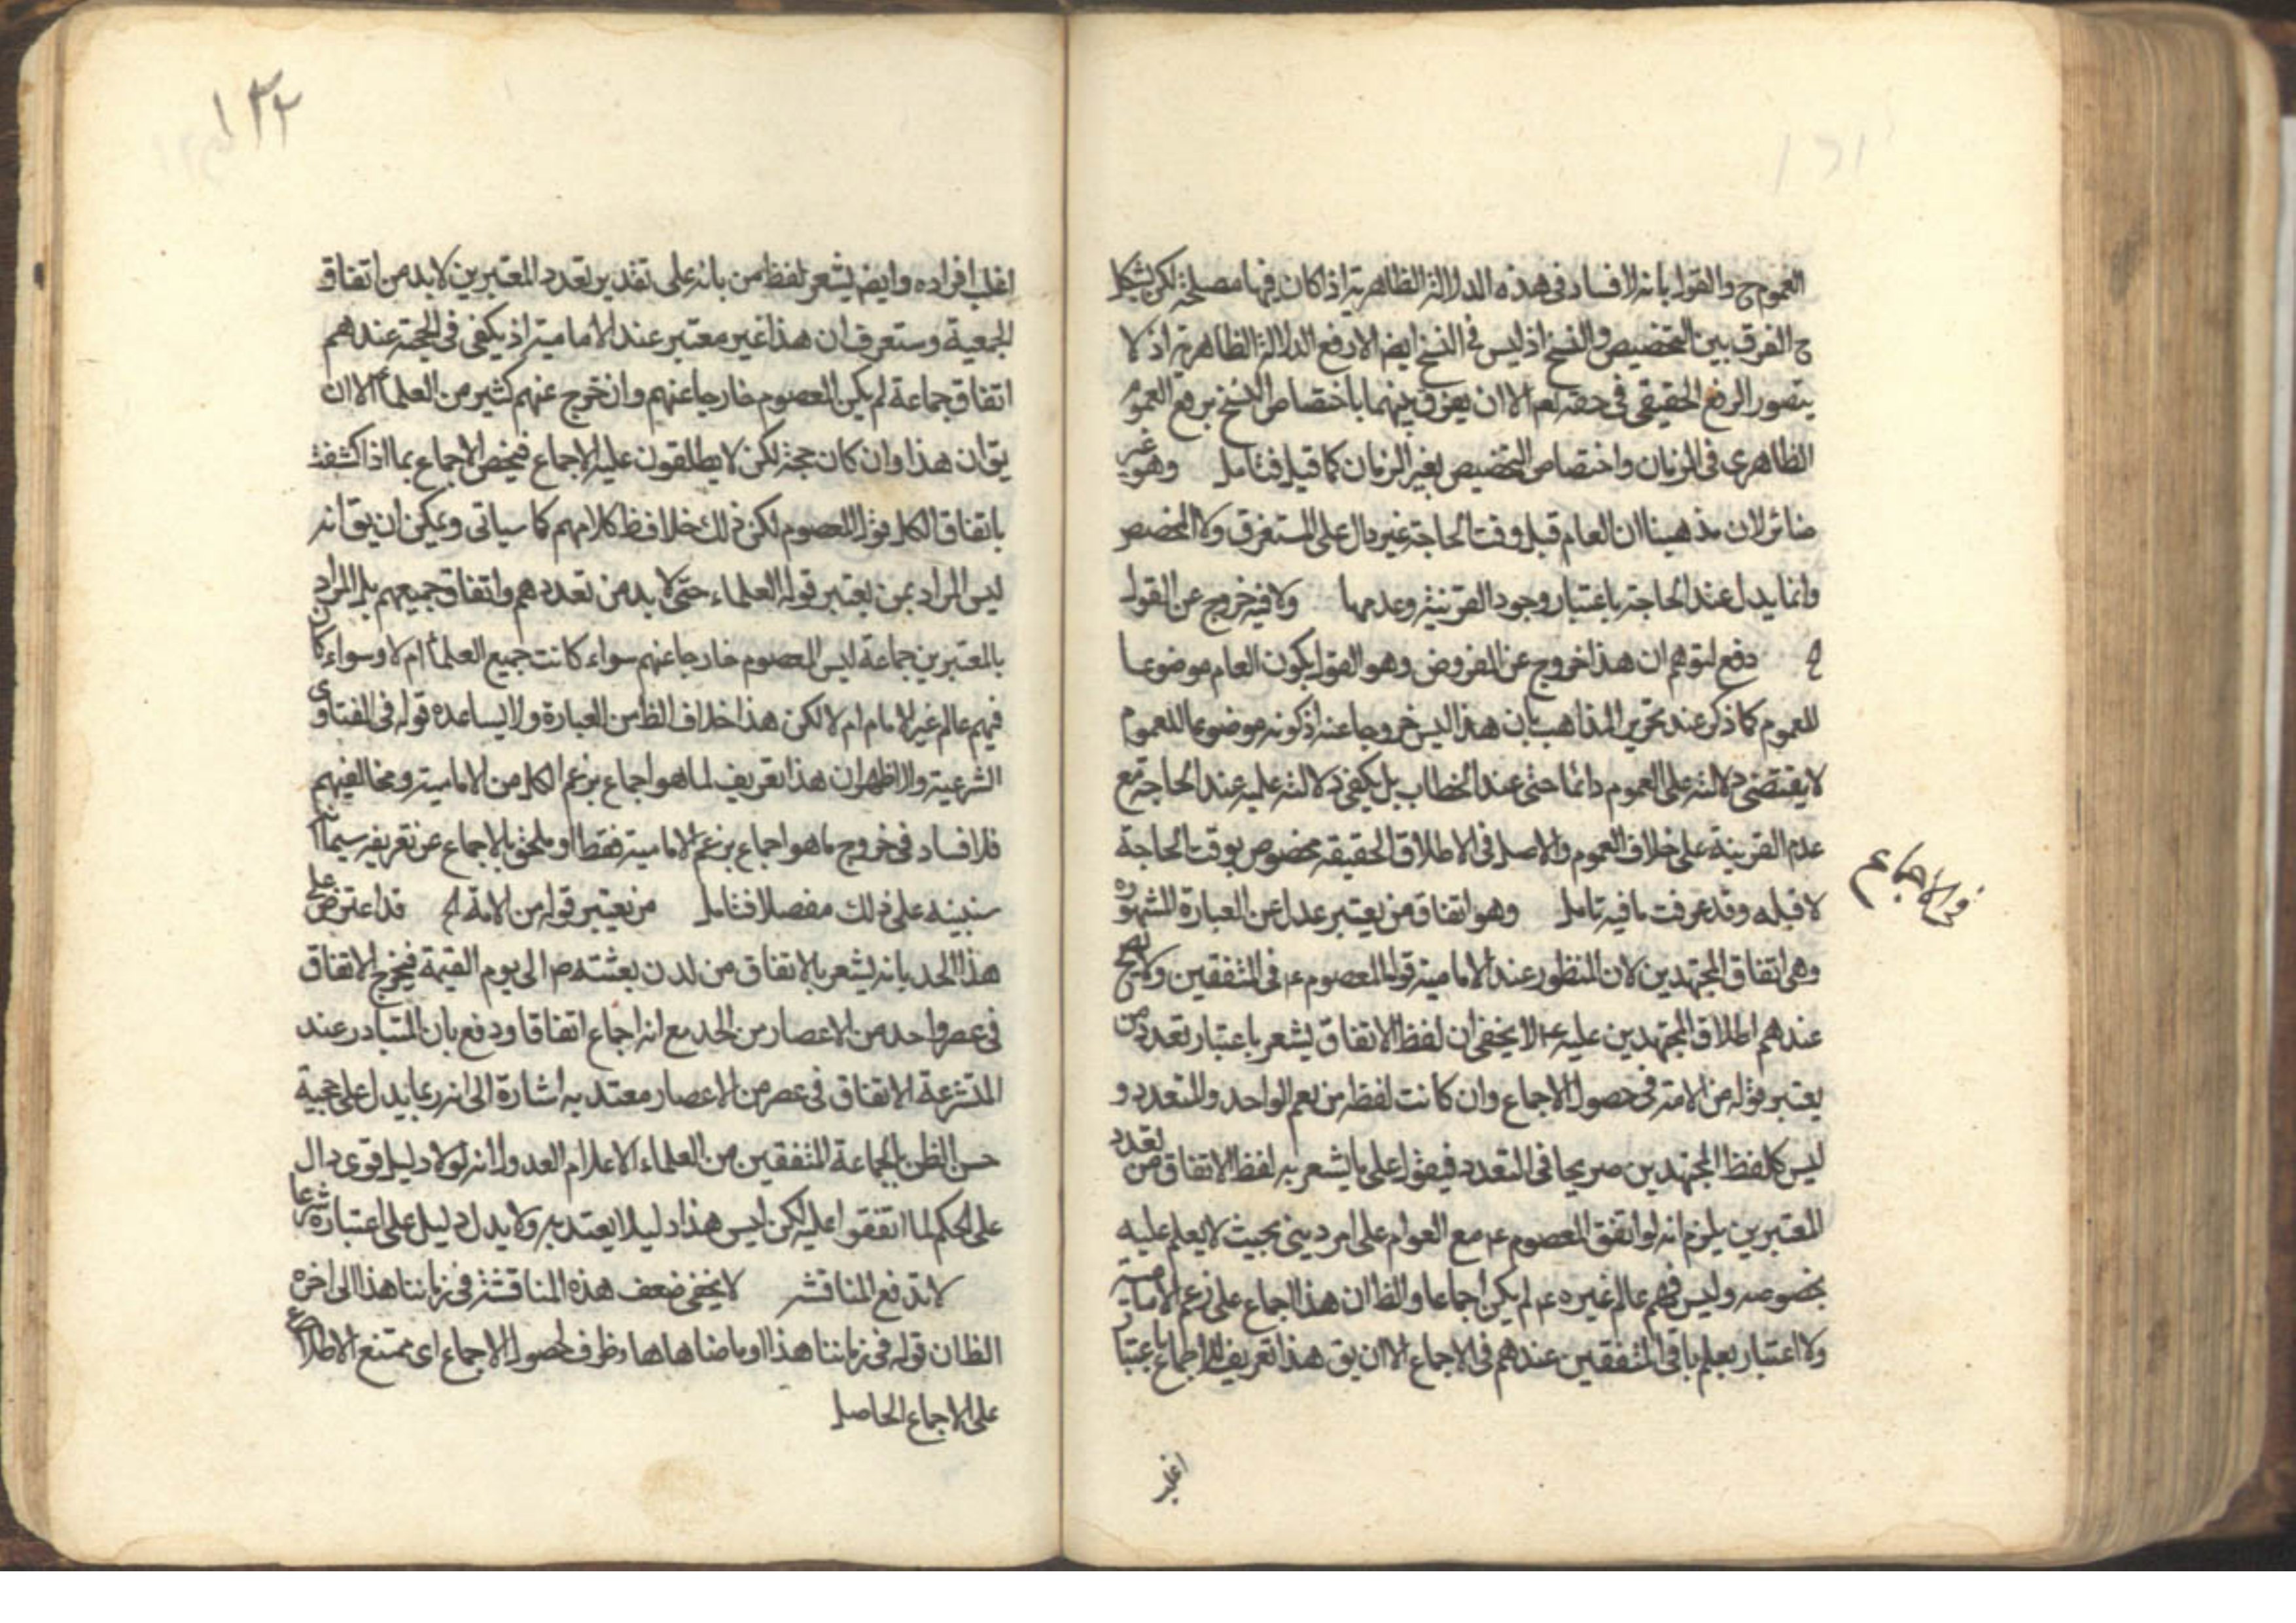 العموم ح والقول بانه لا فساد فى هذه الدلالة الظاهرية اذا كان فيها مصلحة لكن يشكل
ح الفرق بين التخصيص والنسخ اذ ليس فى النسخ ايضا الا رفع الدلالة الظاهرية اذ لا
يتصور الرفع الحقيقى فى حقه نعم الا ان يفرق بينهما باختصاص النسخ برفع العموم
الظاهرى فى الزمان واختصاص التخصيص بغير الزمان كما قيل فتامل وهو غير
ضائر لان مذهبنا ان العام قبل وقت الحاجة غير دال على المستغرق ولا المخصص
وانما يدل عند الحاجة باعتبار وجود القرينة وعدمها ولا فيه خروج عن القول
دفع لتوهم ان هذا خروج عن المفروض وهو القول بكون العام موضوعا
للعموم كما ذكر عند تحرير المذاهب بان هذا ليس خروجا عنه اذ كونه موضوعا للعموم
لا يقتضى دلالته على العموم دائما حتى عند الخطاب بل يكفى دلالته عليه عند الحاجة مع
عدم القرينة على خلاف العموم والاصل فى الاطلاق الحقيقة مخصوص بوقت الحاجة
لا قبله وقد عرفت ما فيه تامل وهو اتفاق من يعتبر عدل عن العبارة المشهورة
فى الاجماع
وهى اتفاق المجتهدين لان المنظور عند الامامية قول المعصوم ع فى المتفقين ولا يصح
عندهم اطلاق المجتهدين عليه ع لا يخفى ان لفظ الاتفاق يشعر باعتبار تعدد من
يعتبر قوله من الامة فى حصول الاجماع وان كانت لفظة من يعم الواحد والمتعدد و
ليس كلفظ المجتهدين صريحا فى التعدد فيقول على ما يشعر به لفظ الاتفاق من تعدد
المعتبرين يلزم انه لو اتفق المعصوم ع مع العوام على امر دينى بحيث لا يعلم عليه
بخصوصه وليس فيهم عالم غيره ع لم يكن اجماعا والظ ان هذا اجماع على زعم الامامية
ولا اعتبار بعلم باقى المتفقين عندهم فى الاجماع الا ان يق هذا تعريف للاجماع باعتبار
اغلب
١٢٢
اغلب افراده وايضا يشعر لفظ من بانه على تقدير تعدد المعتبرين لا بد من اتفاق
الجمعية وستعرف ان هذا غير معتبر عند الامامية اذ يكفى فى الحجة عندهم
اتفاق جماعة لم يكن المعصوم خارجا عنهم وان خرج عنهم كثير من العلماء الا ان
يق ان هذا وان كان حجة لكن لا يطلقون عليه الاجماع فيخص الاجماع بما اذا كشفت
باتفاق الكل قول المعصوم لكن ذلك خلاف ظ كلامهم كما سياتى ويمكن ان يق انه
ليس المراد بمن يعتبر قوله العلماء حتى لا بد من تعددهم واتفاق جميعهم بل المراد
بالمعتبرين جماعة ليس المعصوم خارجا عنهم سواء كانت جميع العلماء ام لا وسواء كان
فيهم عالم غير الامام ام لا لكن هذا خلاف الظ من العبارة ولا يساعده قوله فى الفتاوى
الشرعية والاظهر ان هذا تعريف لما هو اجماع بزعم الكل من الامامية ومخالفيهم
فلا فساد فى خروج ما هو اجماع بزعم الامامية فقط او ملحق بالاجماع عن تعريفه سيما
سنبينه على ذلك مفصلا فتامل من يعتبر قوله من الامة قد اعترض على
هذا الحد بانه يشعر بالاتفاق من لدن بعثته ص الى يوم القيمة فيخرج الاتفاق
فى عصر واحد من الاعصار من الحد مع انه اجماع اتفاقا ودفع بان المتبادر عند
المتشرعة الاتفاق فى عصر من الاعصار معتد به اشارة الى انه ربما يدل على حجية
حسن الظن بالجماعة المتفقين من العلماء الاعلام العدول انه لولا دليل قوى دال
على الحكم لما اتفقوا عليه لكن ليس هذا دليلا يعتد به ولا يدل دليل على اعتباره شرعا
لا تدفع المناقشة لا يخفى ضعف هذه المناقشة فى زماننا هذا الى اخره
الظ ان قوله فى زماننا هذا وما ضاهاها ظرف لحصول الاجماع اى يمتنع الاطلاع
على الاجماع الحاصل